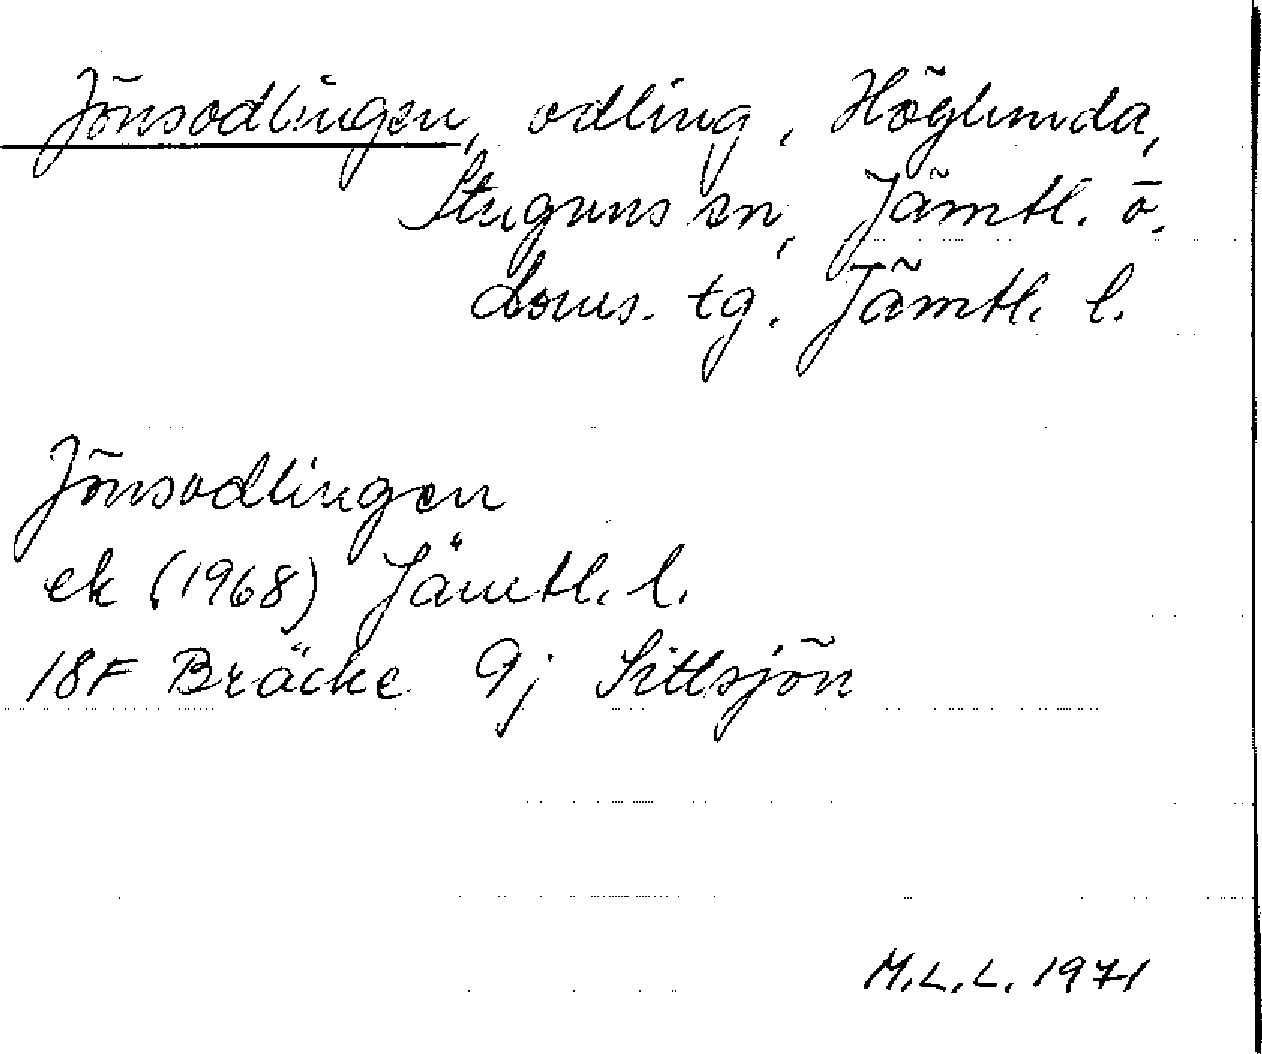 Jönsodlingen, odling, Höglunda,
Stuguns sn, Jämtl. ö.
doms. tg. Jämtl. l.
Jönsodlingen
ek (1968) Jämtl. l.
18F Bräcke 9j Sittsjön
M.L.L. 1971